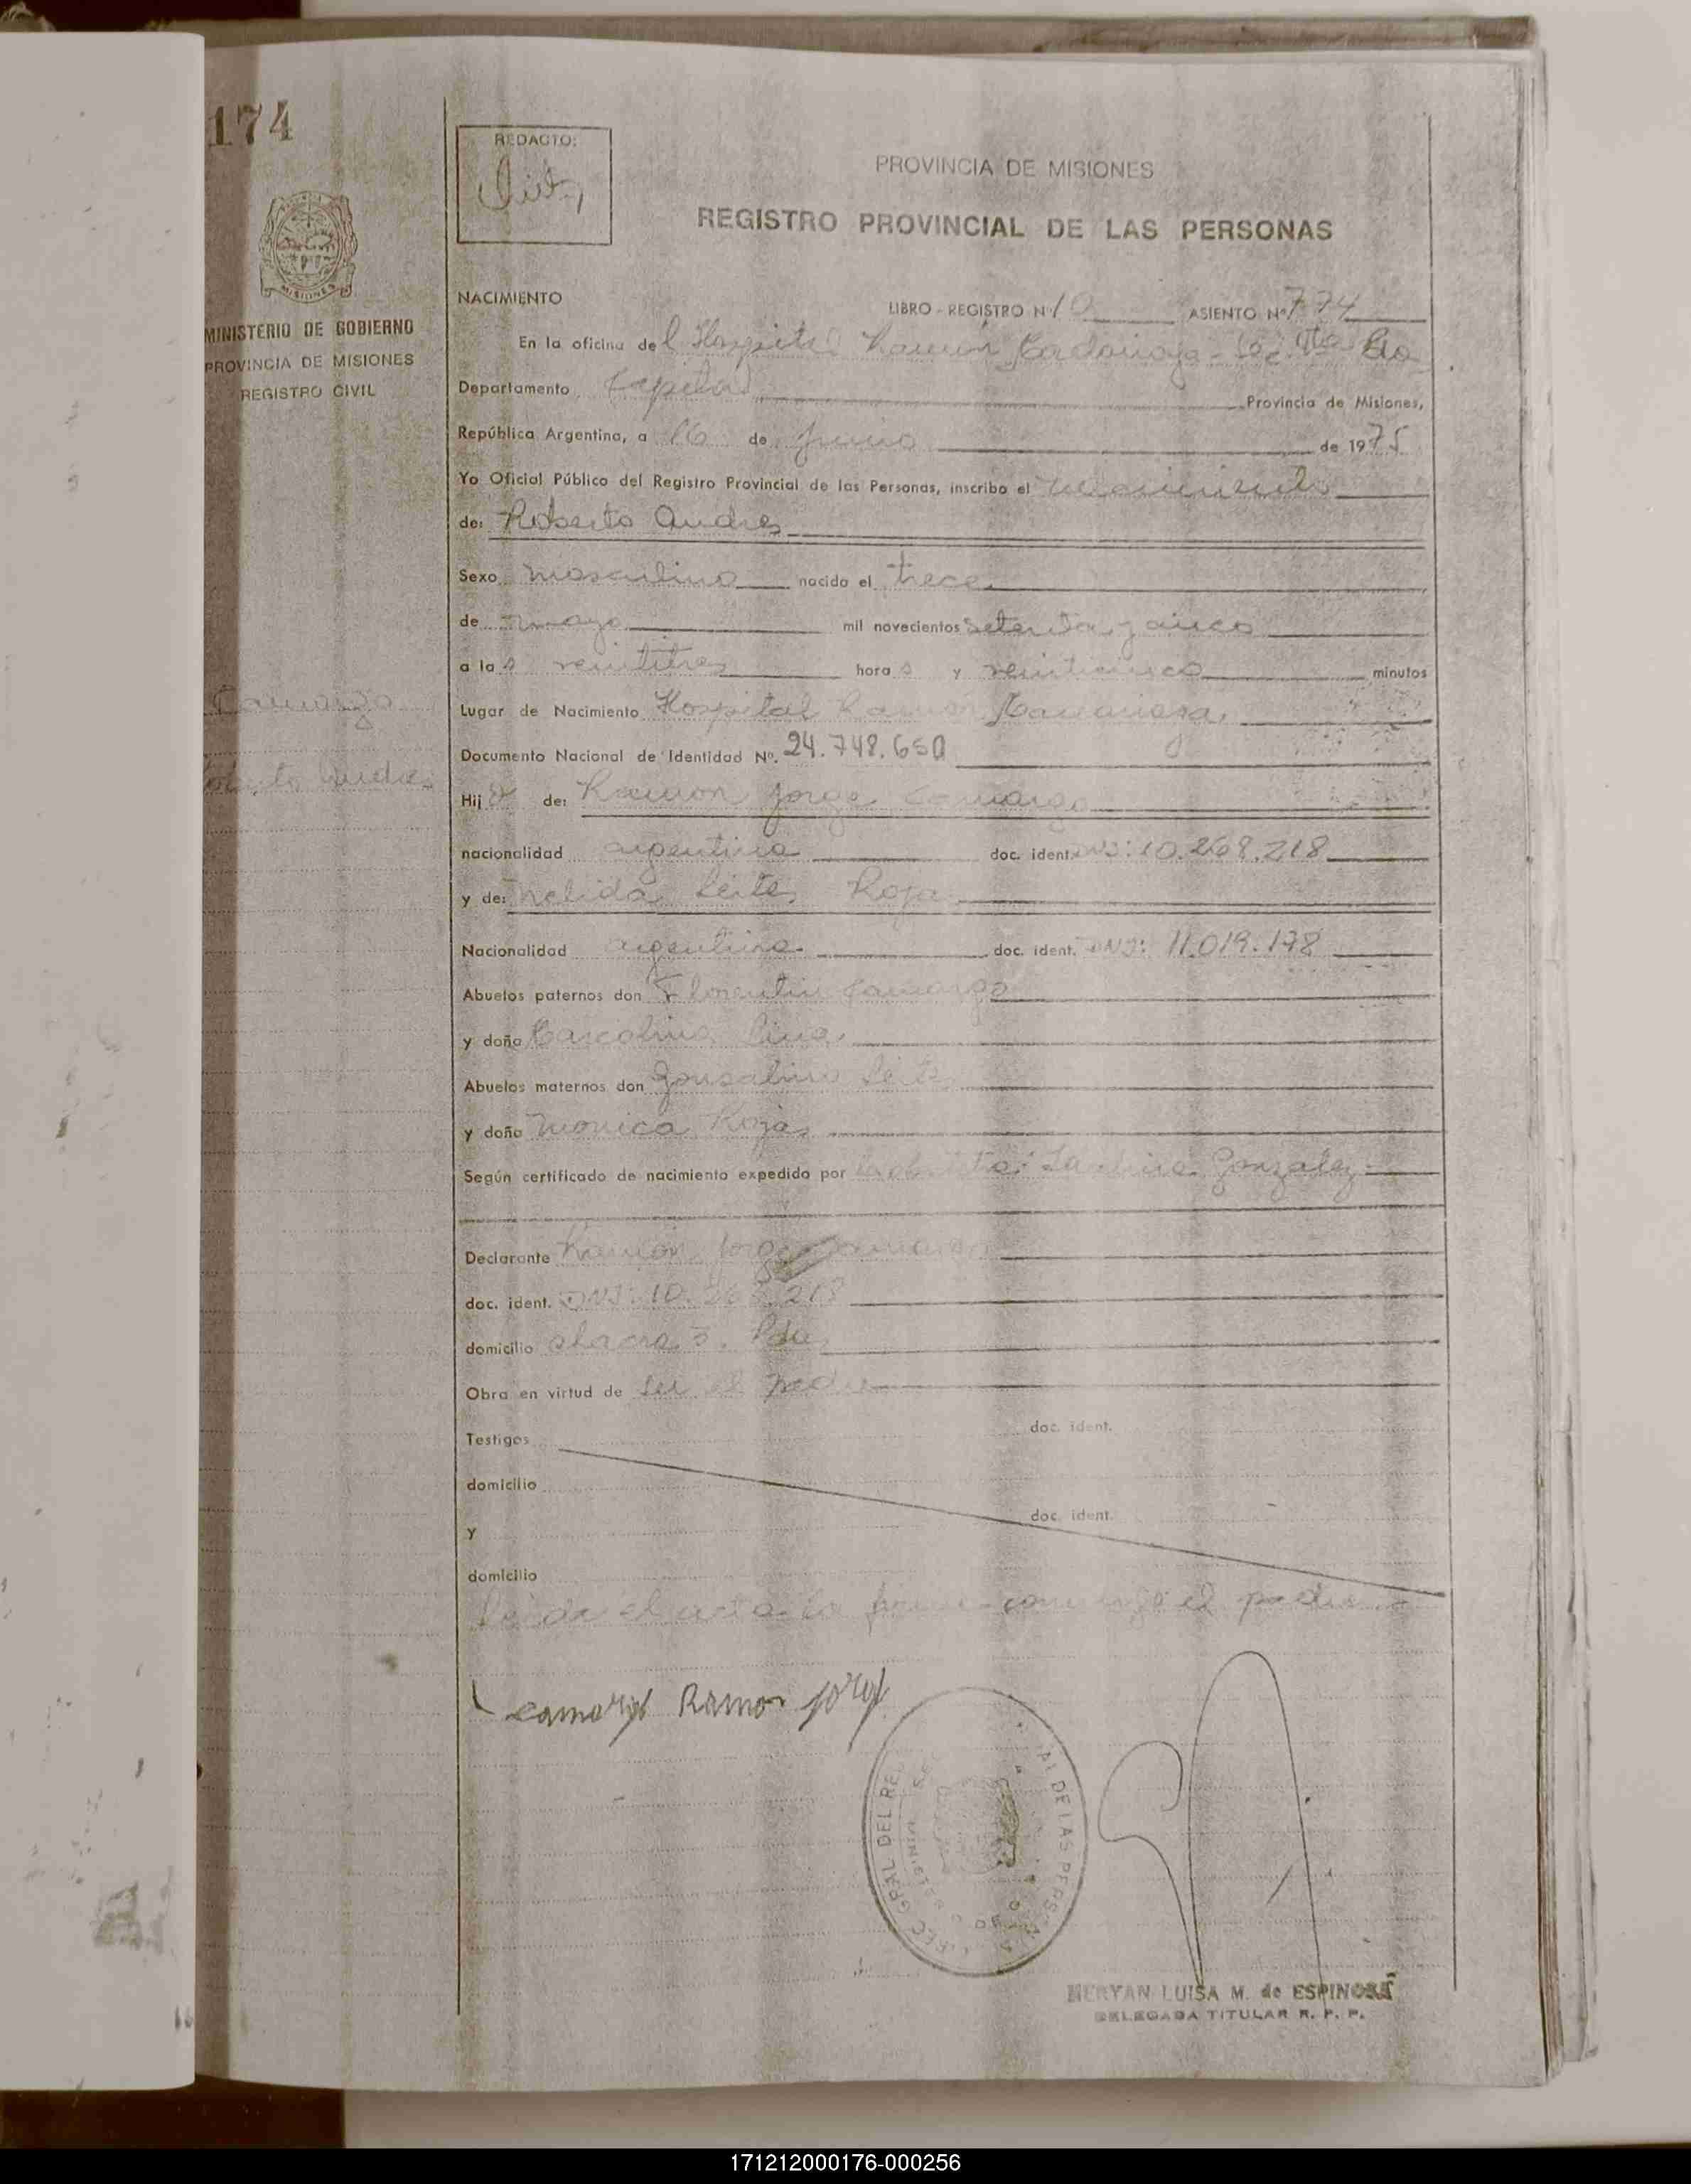 174
REDACTO:
PROVINCIA DE MISIONES
REGISTRO PROVINCIAL DE LAS PERSONAS
MISIONES
MINISTERIO DE GOBIERNO
PROVINCIA DE MISIONES
REGISTRO CIVIL
NACIMIENTO LIBRO - REGISTRO Nº 10 ASIENTO Nº 774
En la oficina del Hospital Ramón
Departamento Capital Provincia de Misiones,
República Argentina, a 16 de junio de 1975
Yo Oficial Público del Registro Provincial de las Personas, inscribo el nacimiento
de: Roberto Andres
Sexo masculino nacido el trece
de mayo mil novecientos setenta y cinco
a las veintitres horas y veinticinco minutos
Camargo
Lugar de Nacimiento Hospital Ramon
Documento Nacional de Identidad Nº. 24.748.650
Roberto Andres
Hijo de: Ramon Jorge Camargo
nacionalidad argentina doc. ident. DNI: 10.268.218
y de: Nelida Leites Roja
Nacionalidad argentina doc. ident. DNI: 11.019.178
Abuelos paternos don Florentin Camargo
y doña
Abuelos maternos don Gonsalino
y doña Monica Rojas
Según certificado de nacimiento expedido por Gonzalez
Declarante Ramón Jorge Camargo
doc. ident. DNI: 10.268.218
domicilio chacra Pdas
Obra en virtud de ser el padre
Testigos doc. ident.
domicilio
y doc. ident.
domicilio
Leida el acta la firma conmigo el padre
Camargo Ramon Jorge
MERYAN LUISA M. de ESPINOSA
DELEGADA TITULAR R. P. P.
171212000176-000256